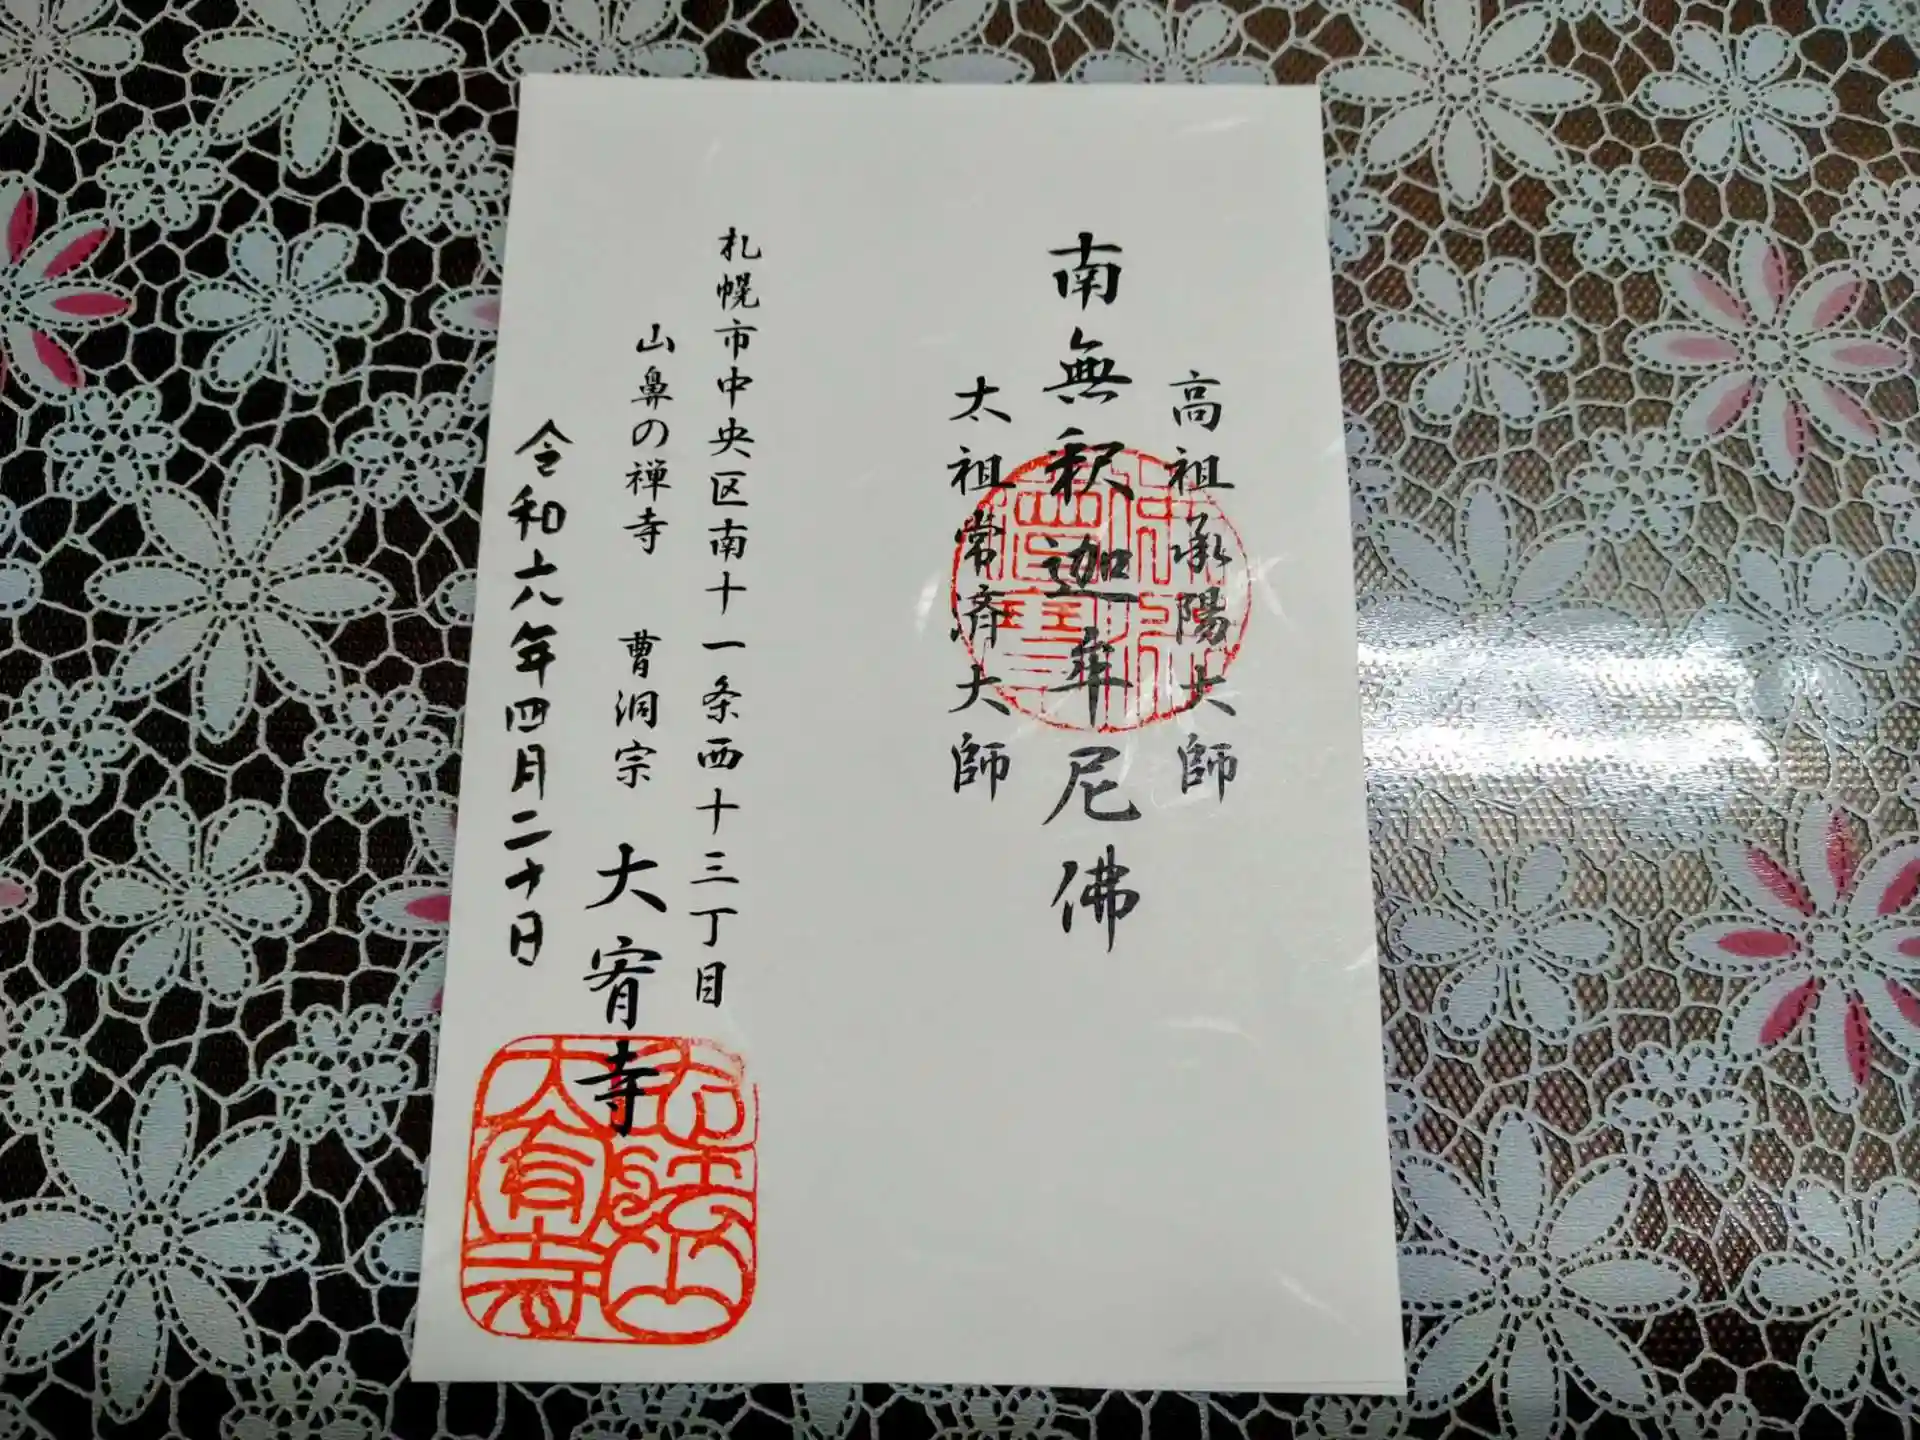 高祖承陽大師
南無釈迦牟尼佛
太祖常済大師
札幌市中央区南十一条西十三丁目
山鼻の禅寺 曹洞宗 大宥寺
令和六年四月二十日
佛法僧寶